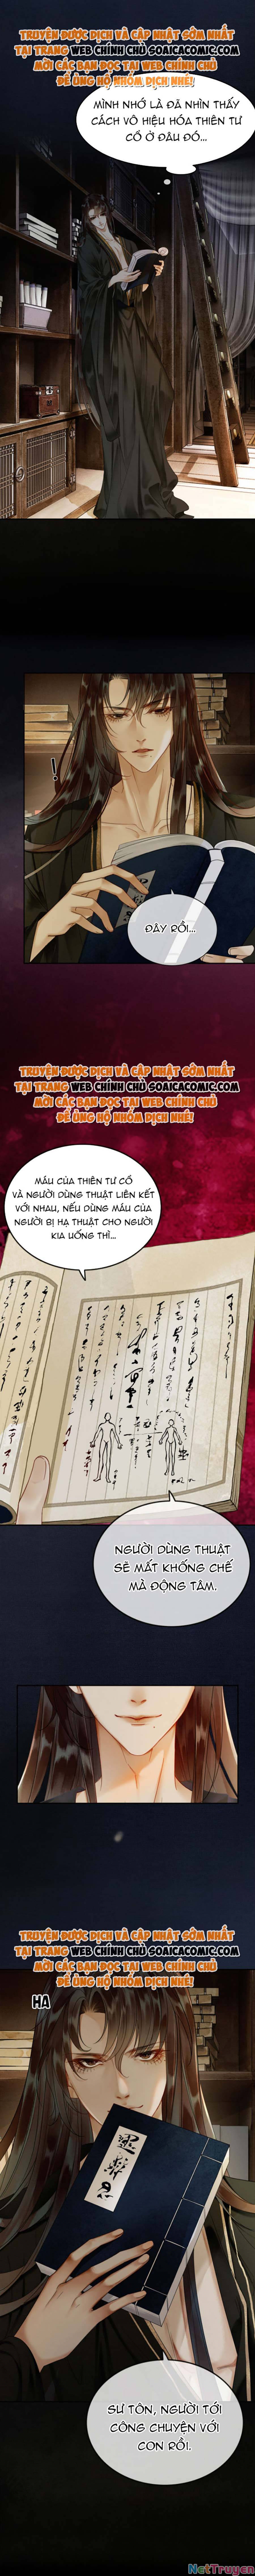 TRUYỆN ĐƯỢC DỊCH VÀ CẬP NHẬT SỚM NHẤT
TẠI TRANG WEB CHÍNH CHỦ SOAICACOMIC.COM
MỜI CÁC BẠN ĐỌC TẠI WEB CHÍNH CHỦ
ĐỂ ỦNG HỘ NHÓM DỊCH NHÉ!
MÌNH NHỚ LÀ ĐÃ NHÌN THẤY
CÁCH VÔ HIỆU HÓA THIÊN TƯ
CỔ Ở ĐÂU ĐÓ...
!
ĐÂY RỒI...
TRUYỆN ĐƯỢC DỊCH VÀ CẬP NHẬT SỚM NHẤT
TẠI TRANG WEB CHÍNH CHỦ SOAICACOMIC.COM
MỜI CÁC BẠN ĐỌC TẠI WEB CHÍNH CHỦ
ĐỂ ỦNG HỘ NHÓM DỊCH NHÉ!
MÁU CỦA THIÊN TƯ CỔ
VÀ NGƯỜI DÙNG THUẬT LIÊN KẾT
VỚI NHAU, NẾU DÙNG MÁU CỦA
NGƯỜI BỊ HẠ THUẬT CHO NGƯỜI
KIA UỐNG THÌ...
NGƯỜI DÙNG THUẬT
SẼ MẤT KHỐNG CHẾ
MÀ ĐỘNG TÂM.
TRUYỆN ĐƯỢC DỊCH VÀ CẬP NHẬT SỚM NHẤT
TẠI TRANG WEB CHÍNH CHỦ SOAICACOMIC.COM
MỜI CÁC BẠN ĐỌC TẠI WEB CHÍNH CHỦ
ĐỂ ỦNG HỘ NHÓM DỊCH NHÉ!
HA
SƯ TÔN, NGƯỜI TỚI
CÔNG CHUYỆN VỚI
CON RỒI.
NetTruyen